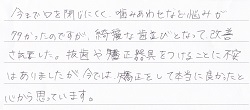 今まで口を閉じにくく、噛みあわせなど悩みが
多かったのですが、綺麗な歯並びとなって改善
されました。抜歯や矯正器具をつけることに不安
はありましたが今では、矯正をして本当に良かったと
心から思っています。